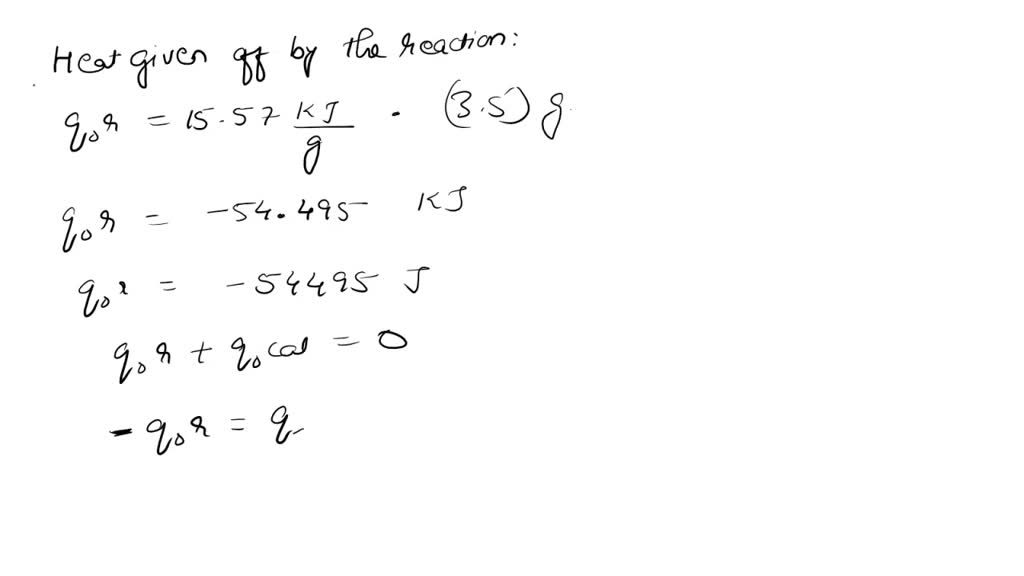 Heat given off by the reaction:
q₀r = 15.57 KJ/g · (3.5) g
q₀r = -54.495 KJ
q₀r = -54495 J
q₀r + q₀cal = 0
-q₀r = q